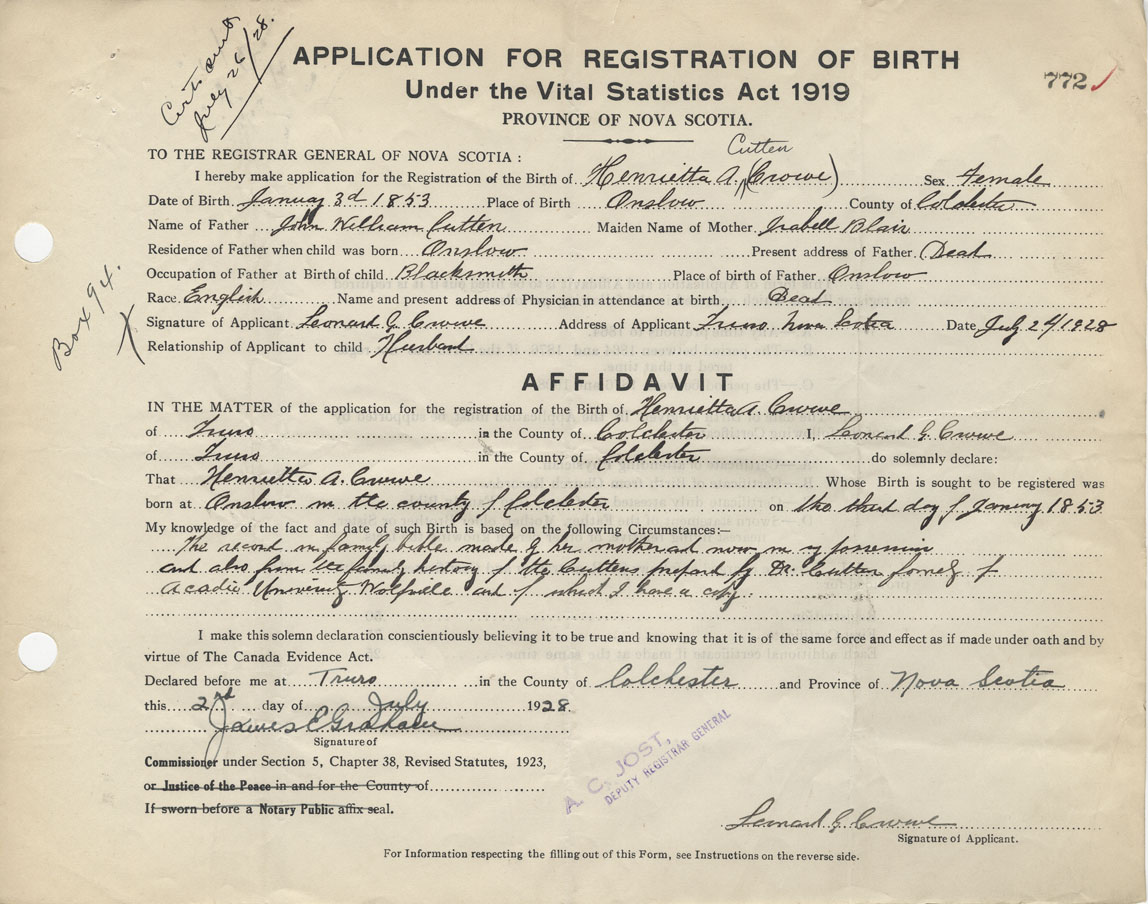 Certs out
July 26/28.
APPLICATION FOR REGISTRATION OF BIRTH
Under the Vital Statistics Act 1919
772
PROVINCE OF NOVA SCOTIA.
Cutten
TO THE REGISTRAR GENERAL OF NOVA SCOTIA :
I hereby make application for the Registration of the Birth of Henrietta A. (Crowe) Sex Female
Date of Birth January 3d 1853 Place of Birth Onslow County of Colchester
Name of Father John William Cutten Maiden Name of Mother Isabell Blair
Residence of Father when child was born Onslow Present address of Father Dead
Occupation of Father at Birth of child Blacksmith Place of birth of Father Onslow
Race English Name and present address of Physician in attendance at birth Dead
Box 94.
Signature of Applicant Leonard G. Crowe Address of Applicant Truro Nova Scotia Date July 24/1928
Relationship of Applicant to child Husband
AFFIDAVIT
IN THE MATTER of the application for the registration of the Birth of Henrietta A. Crowe
of Truro in the County of Colchester I, Leonard G. Crowe
of Truro in the County of Colchester do solemnly declare:
That Henrietta A. Crowe Whose Birth is sought to be registered was
born at Onslow in the county of Colchester on the third day of January 1853
My knowledge of the fact and date of such Birth is based on the following Circumstances:—
The record in family bible made by her mother and now in my possession
and also from the family history of the Cuttens prepared by Dr. Cutten formerly of
Acadia University Wolfville and of which I have a copy.
I make this solemn declaration conscientiously believing it to be true and knowing that it is of the same force and effect as if made under oath and by
virtue of The Canada Evidence Act.
Declared before me at Truro in the County of Colchester and Province of Nova Scotia
this day of July 1928.
James E Graham
Signature of
Commissioner under Section 5, Chapter 38, Revised Statutes, 1923,
or Justice of the Peace in and for the County of
If sworn before a Notary Public affix seal.
A. C. JOST,
DEPUTY REGISTRAR GENERAL
Leonard G. Crowe
Signature of Applicant.
For Information respecting the filling out of this Form, see Instructions on the reverse side.